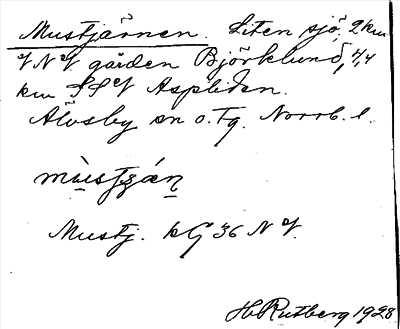 Mustjärnen. Liten sjö, 2 km
VNV gården Björklund, 4,4
km SSV Aspliden.
Älvsby sn o. Tg. Norrb. l.
Mustj. kG 36 NV.
H. Rutberg 1928